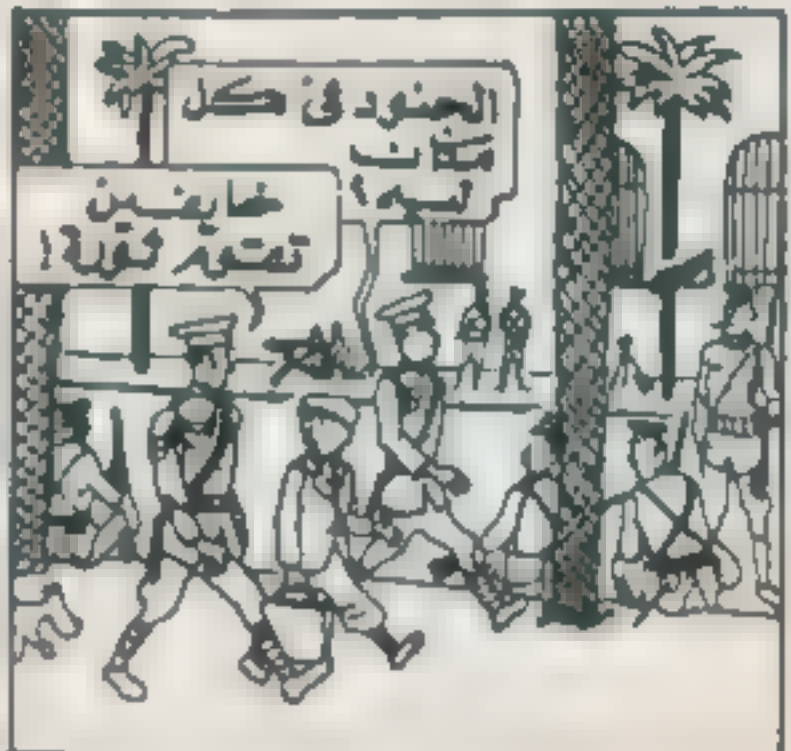 الجنود فى كل
مكان
ليه؟
خايفين
تقوم ثورة!